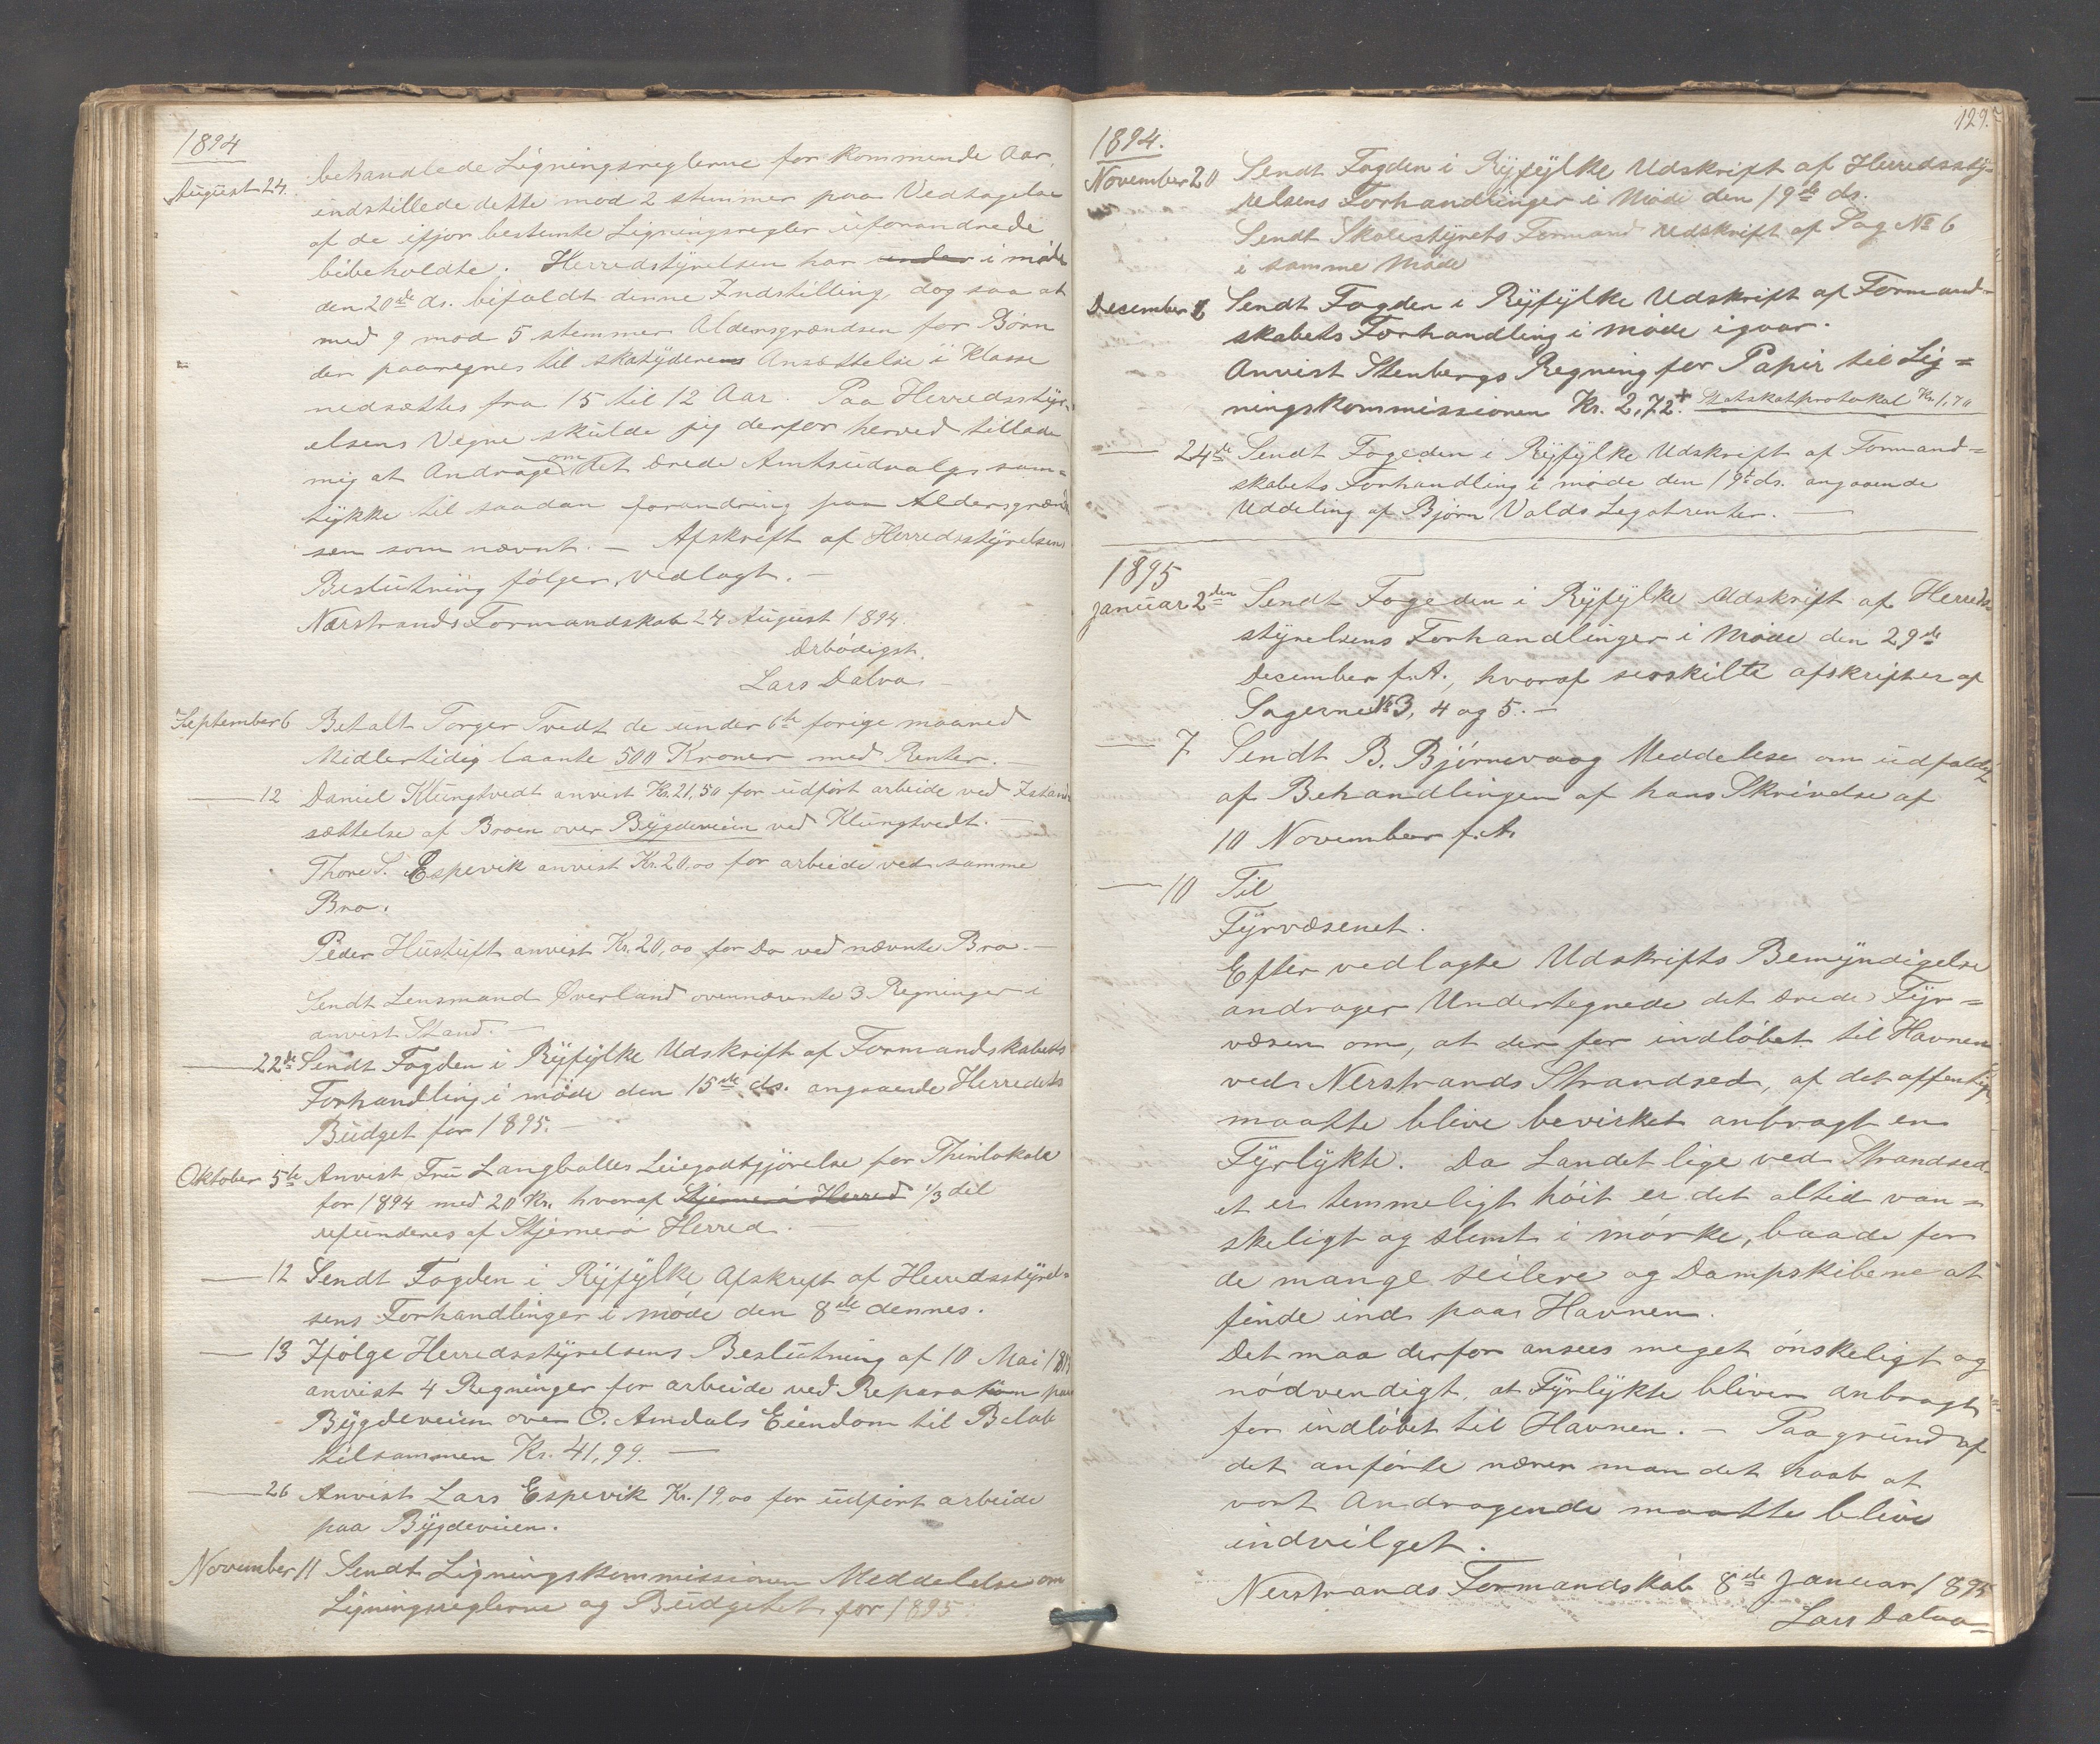 1894
August 24. behandlede Ligningsreglerne for kommende Aar,
indstillede dette mod 2 stemmer paa Vedtagelse
af de ifjor bestemte Ligningsregler uforandrede
bibeholdte. Herredstyrelsen har under i møde
den 20de ds. bifaldt denne Indstilling, dog saa at
med 9 mod 5 stemmer Aldersgrændsen for Børn
der paaregnes til skatyderens Ansættelse i Klasse
nedsættes fra 15 til 12 Aar. Paa Herredsstyr-
elsens Vegne skulde jeg derfor herved tillade
mig at Andrage om det ærede Amtsudvalgs sam=
tykke til saadan forandring paa Aldersgrænd
sen som nævnt. — Afskrift af Herredsstyrelsens
Beslutning følger vedlagt. —
Nærstrands Formandskab 24 August 1894.
Ærbødigst.
Lars Dalva
September 6 Betalt Torger Tvedt de under 6te forige maaned
Midlertidig laante 500 Kroner med Renter. —
— 12 Daniel Klungtvedt anvist Kr. 21,50 for udført arbeide ved Istand
sættelse af Broen over Bygdeveien ved Klungtvedt. —
Thore S. Espevik anvist Kr. 20,00 for arbeide ved samme
Bro.
Peder Hustuft anvist Kr. 20,00 for Do ved nævnte Bro. —
Sendt Lensmand Øverland overnævnte 3 Regninger i
anvist Stand. —
— 22de Sendt Fogden i Ryfylke Udskrift af Formandskabets
Forhandling i møde den 15de ds. angaaende Herredets
Budget for 1895. —
Oktober 5te Anvist Fru Langballes Leiegodtgjørelse for Thinlokale
for 1894 med 20 Kr. hvoraf Stjernerø Herred 1/3 del
refunderes af Stjernerø Herred. —
— 12 Sendt Fogden i Ryfylke Afskrift af Herredsstyrel=
sens Forhandlinger i møde den 8de dennes.
— 13 Ifølge Herredsstyrelsens Beslutning af 10 Mai
anvist 4 Regninger for arbeide ved Reparation paa
Bygdeveien over O. Amdals Eiendom til Beløb
tilsammen Kr. 41,99. —
— 26 Anvist Lars Espevik Kr. 19,00 for udført arbeide
paa Bygdeveien.
November 11 Sendt Ligningskommissionen Meddelelse om
Ligningsreglerne og Budgetet for 1895
129.
1894.
November 20 Sendt Fogden i Ryfylke Udskrift af Herredssty-
relsens Forhandlinger i Møde den 19de ds.
Sendt Skolestyrets Formand Udskrift af Sag № 6
i samme Møde
December Sendt Fogden i Ryfylke Udskrift af Formand-
skabets Forhandling i møde igaar.
Anvist Stenbergs Regning for Papir til Lig=
ningskommissionen Kr. 2,72. + Statskatprotokol Kr 1,70
— 24de Sendt Fogeden i Ryfylke Udskrift af Formand=
skabets Forhandling i møde den 19de ds. angaaende
Uddeling af Bjørn Valds Legatrenter. —
1895
Januar 2den Sendt Fogeden i Ryfylke Udskrift af Herreds
styrelsens Forhandlinger i Møde den 29de
December f. A., hvoraf særskilte afskrifter af
Sagerne № 3, 4 og 5. —
— 7 Sendt B. Bjørnevaag Meddelese om udfaldet
af Behandlingen af hans Skrivelse af
10 November f. A.
— 10 Til
Fyrvæsenet.
Efter vedlagte Udskrifts Bemyndigelse
andrager Undertegnede det ærede Fyr=
væsen om, at der for indløbet til Havnen
ved Nerstrands Strandsed, af det offentlige
maatte blive bevirket anbragt en
Fyrlykte. Da Landet lige ved Strandsed
et er temmeligt høit er det altid van=
skeligt og slemt i mørke, baade for
de mange seilere og Dampskibene at
finde ind paa Havnen.
Det maa derfor ansees meget ønskeligt og
nødvendigt, at Fyrlykte bliver anbragt
for indløbet til Havnen. — Paa grund af
det anførte nærer man det haab at
vort Andragende maatte blive
indvilget.
Nerstrands Formandskab 8de Januar 1895
Lars Dalva